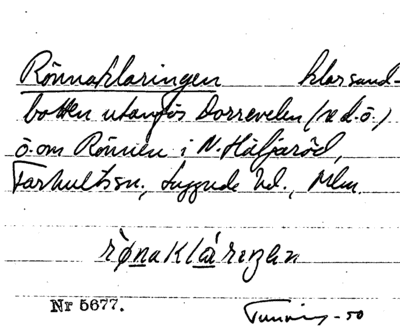 Rönnaklaringen klarsand-
botten utanför Dorrevelen (se d.o.)
ö. om Rönnen i N. Häljaröd,
Farhultssn., Luggude hd., Mlm.
rø̀naklàreŋən
Nr 5677.
-50